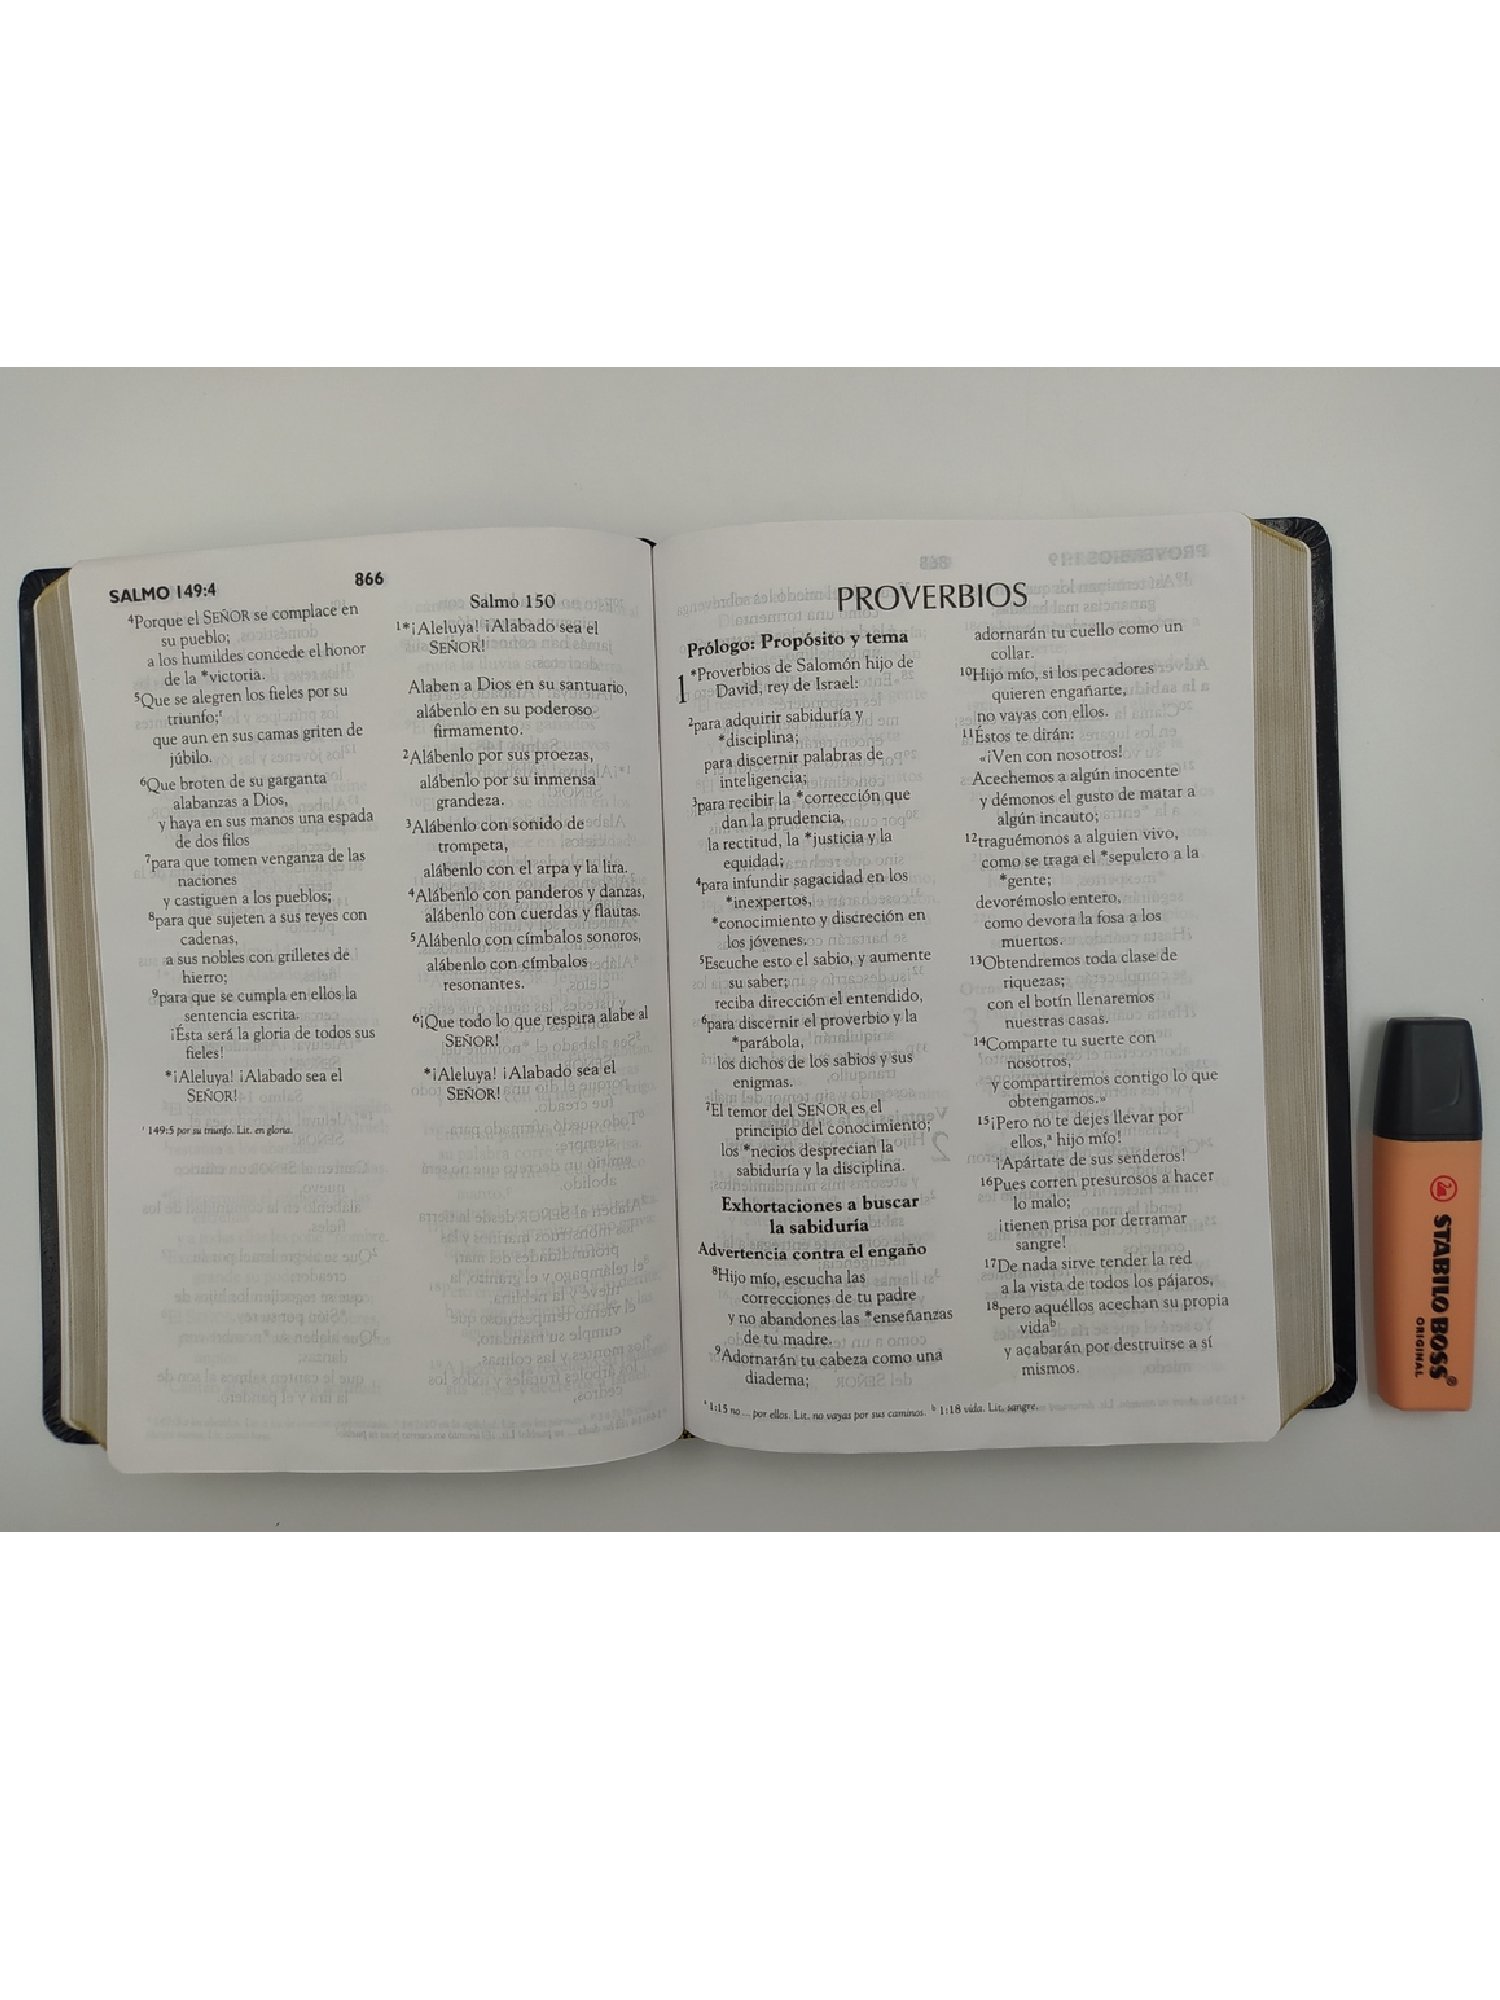 SALMO 149:4
866
⁴Porque el SEÑOR se complace en
su pueblo;
a los humildes concede el honor
de la *victoria.
⁵Que se alegren los fieles por su
triunfo;ᶠ
que aun en sus camas griten de
júbilo.
⁶Que broten de su garganta
alabanzas a Dios,
y haya en sus manos una espada
de dos filos
⁷para que tomen venganza de las
naciones
y castiguen a los pueblos;
⁸para que sujeten a sus reyes con
cadenas,
a sus nobles con grilletes de
hierro;
⁹para que se cumpla en ellos la
sentencia escrita.
¡Ésta será la gloria de todos sus
fieles!
*¡Aleluya! ¡Alabado sea el
SEÑOR!
149:5 por su triunfo. Lit. en gloria.
Salmo 150
¹*¡Aleluya! ¡Alabado sea el
SEÑOR!
Alaben a Dios en su santuario,
alábenlo en su poderoso
firmamento.
²Alábenlo por sus proezas,
alábenlo por su inmensa
grandeza.
³Alábenlo con sonido de
trompeta,
alábenlo con el arpa y la lira.
⁴Alábenlo con panderos y danzas,
alábenlo con cuerdas y flautas.
⁵Alábenlo con címbalos sonoros,
alábenlo con címbalos
resonantes.
⁶¡Que todo lo que respira alabe al
SEÑOR!
*¡Aleluya! ¡Alabado sea el
SEÑOR!
PROVERBIOS
Prólogo: Propósito y tema
1 *Proverbios de Salomón hijo de
David, rey de Israel:
²para adquirir sabiduría y
*disciplina;
para discernir palabras de
inteligencia;
³para recibir la *corrección que
dan la prudencia,
la rectitud, la *justicia y la
equidad;
⁴para infundir sagacidad en los
*inexpertos,
*conocimiento y discreción en
los jóvenes.
⁵Escuche esto el sabio, y aumente
su saber;
reciba dirección el entendido,
⁶para discernir el proverbio y la
*parábola,
los dichos de los sabios y sus
enigmas.
⁷El temor del SEÑOR es el
principio del conocimiento;
los *necios desprecian la
sabiduría y la disciplina.
Exhortaciones a buscar
la sabiduría
Advertencia contra el engaño
⁸Hijo mío, escucha las
correcciones de tu padre
y no abandones las *enseñanzas
de tu madre.
⁹Adornarán tu cabeza como una
diadema;
adornarán tu cuello como un
collar.
¹⁰Hijo mío, si los pecadores
quieren engañarte,
no vayas con ellos.
¹¹Éstos te dirán:
«¡Ven con nosotros!
Acechemos a algún inocente
y démonos el gusto de matar a
algún incauto;
¹²traguémonos a alguien vivo,
como se traga el *sepulcro a la
*gente;
devorémoslo entero,
como devora la fosa a los
muertos.
¹³Obtendremos toda clase de
riquezas;
con el botín llenaremos
nuestras casas.
¹⁴Comparte tu suerte con
nosotros,
y compartiremos contigo lo que
obtengamos.»
¹⁵¡Pero no te dejes llevar por
ellos,ᵃ hijo mío!
¡Apártate de sus senderos!
¹⁶Pues corren presurosos a hacer
lo malo;
¡tienen prisa por derramar
sangre!
¹⁷De nada sirve tender la red
a la vista de todos los pájaros,
¹⁸pero aquéllos acechan su propia
vidaᵇ
y acabarán por destruirse a sí
mismos.
ᵃ 1:15 no... por ellos. Lit. no vayas por sus caminos. ᵇ 1:18 vida. Lit. sangre.
STABILO BOSS®
ORIGINAL